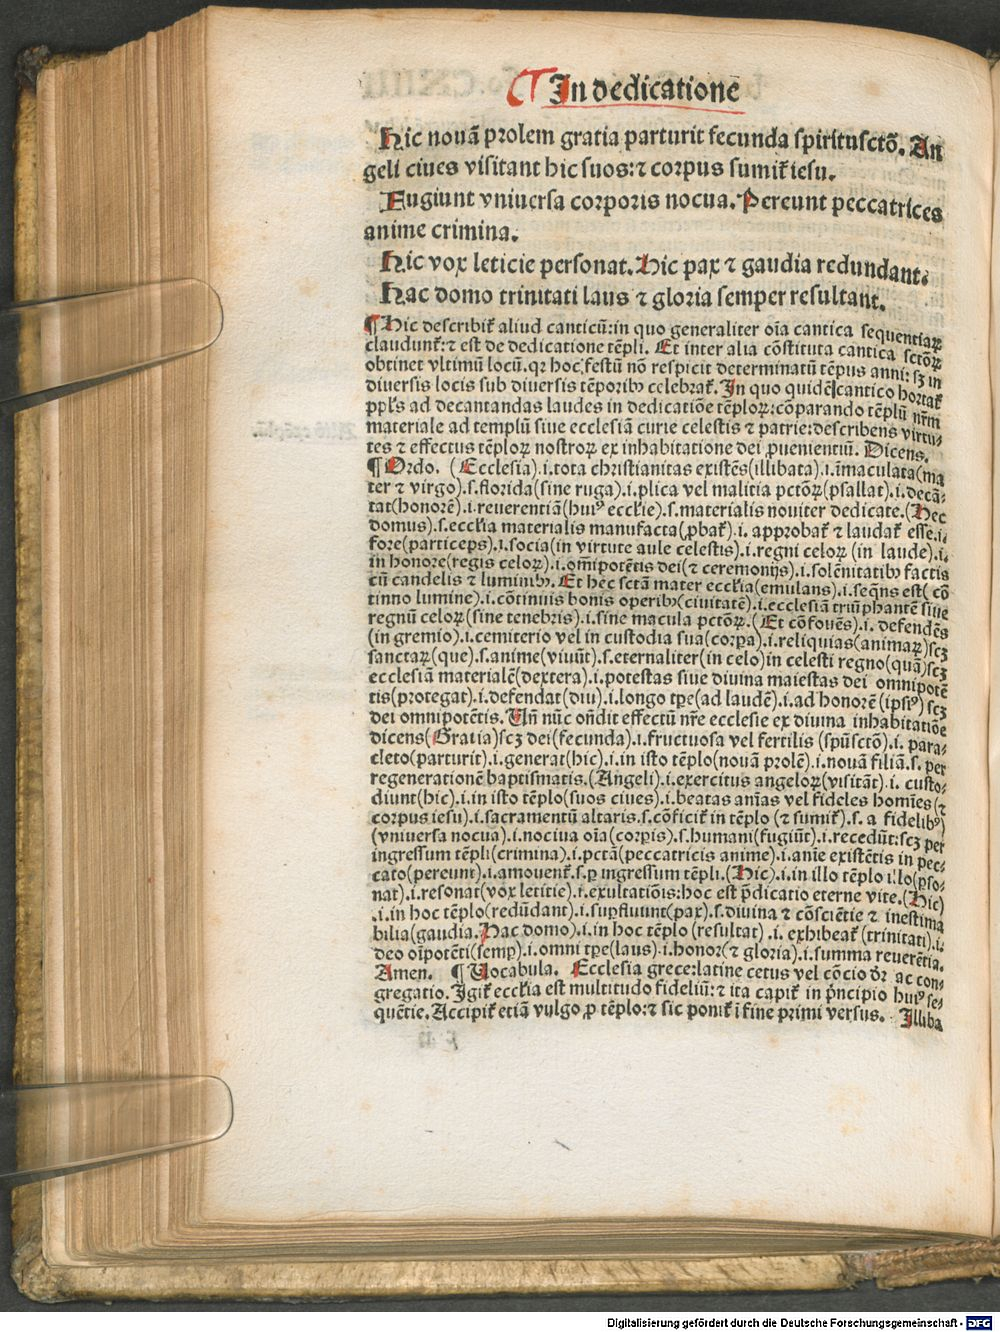 In dedicatione
Hic nouã prolem gratia parturit fecunda spiritusctõ. An
geli ciues visitant hic suos:⁊ corpus sumit̃ iesu.
Fugiunt vniuersa corporis nocua. Pereunt peccatrices
anime crimina.
Hic vox leticie personat. Hic pax ⁊ gaudia redundant.
Hac domo trinitati laus ⁊ gloria semper resultant.
¶ Hic describit̃ aliud canticũ:in quo generaliter oĩa cantica sequentiaꝝ
claudunt̃:⁊ est de dedicatione tẽpli. Et inter alia cõstituta cantica sctõꝝ
obtinet vltimũ locũ.qꝛ hoc festũ nõ respicit determinatũ tẽpus anni:sꝫ in
diuersis locis sub diuersis tẽporibꝰ celebrat̃. In quo quidẽ cantico hortat̃
ppl's ad decantandas laudes in dedicatiõe tẽploꝝ:cõparando tẽplũ nr̃m
materiale ad templũ siue ecclesiã curie celestis ⁊ patrie:describens virtu-
tes ⁊ effectus tẽploꝝ nostroꝝ ex inhabitatione dei ꝓuenientiũ. Dicens.
¶ Ordo. (Ecclesia).i.tota christianitas existẽs(illibata).i.ĩmaculata(ma
ter ⁊ virgo).s.florida(sine ruga).i.plica vel malitia pctõꝝ(psallat).i.decã-
tat(honorẽ).i.reuerentiã(huiꝰ eccl'ie).s.materialis nouiter dedicate.(Hec
domus).s.eccl'ia materialis manufacta(ꝓbat̃).i. approbat̃ ⁊ laudat̃ esse.i.
fore(particeps).i.socia(in virtute aule celestis).i.regni celoꝝ (in laude).i.
in honore(regis celoꝝ).i.om̃ipotẽtis dei(⁊ ceremonijs).i.solẽnitatibꝰ factis
cũ candelis ⁊ luminibꝰ. Et hec sctã mater eccl'ia(emulans).i.seq̃ns est( cõ
tinno lumine).i.cõtinuis bonis operibꝰ(ciuitatẽ).i.ecclesiã triũphantẽ siue
regnũ celoꝝ(sine tenebris).i.sine macula pctõꝝ.(Et cõfouẽs).i. defendẽs
(in gremio).i.cemiterio vel in custodia sua(corpa).i.reliquias(animaꝝ)scꝫ
sanctaꝝ(que).s.anime(viuũt).s.eternaliter(in celo)in celesti regno(quã)scꝫ
ecclesiã materialẽ(dextera).i.potestas siue diuina maiestas dei omnipotẽ
tis(protegat).i.defendat(diu).i.longo tꝑe(ad laudẽ).i.ad honorẽ(ipsiꝰ)scꝫ
dei omnipotẽtis. Uñ nũc oñdit effectũ nr̃e ecclesie ex diuina inhabitatiõe
dicens(Gratia)scꝫ dei(fecunda).i.fructuosa vel fertilis (spũsctõ).i. para-
cleto(parturit).i.generat(hic).i.in isto tẽplo(nouã prolẽ).i.nouã filiã.s. per
regenerationẽ baptismatis.(Angeli).i.exercitus angeloꝝ(visitãt).i. custo-
diunt(hic).i.in isto tẽplo(suos ciues).i.beatas ani͂as vel fideles homi͂es(⁊
corpus iesu).i.sacramentũ altaris.s.cõficit̃ in tẽplo (⁊ sumit̃).s. a fidelibꝰ)
(vniuersa nocua).i.nociua oĩa(corpis).s.humani(fugiũt).i.recedũt:scꝫ per
ingressum tẽpli(crimina).i.pctã(peccatricis anime).i.ani͂e existẽtis in pec-
cato(pereunt).i.amouent̃.s.ꝑ ingressum tẽpli.(Hic).i.in illo tẽplo illo(ꝑso-
nat).i.resonat(vox letitie).i.exultatiõis:hoc est p̃dicatio eterne vite.(Hic)
.i.in hoc tẽplo(redũdant).i.suꝑfluunt(pax).s.diuina ⁊ cõsciẽtie ⁊ inestima
bilia(gaudia. Hac domo).i.in hoc tẽplo (resultat) .i. exhibeat̃ (trinitati).i.
deo oĩpotẽti(semꝑ).i.omni tꝑe(laus).i.honor(⁊ gloria).i.summa reuerẽtia.
Amen. ¶ Uocabula. Ecclesia grece:latine cetus vel cõcio dr̃ ac con-
gregatio. Igit̃ eccl'ia est multitudo fideliũ:⁊ ita capit̃ in p̃ncipio huiꝰ se-
quẽtie. Accipit̃ etiã vulgo ꝓ tẽplo:⁊ sic ponit̃ ĩ fine primi versus. Illiba
Digitalisierung gefördert durch die Deutsche Forschungsgemeinschaft - DFG